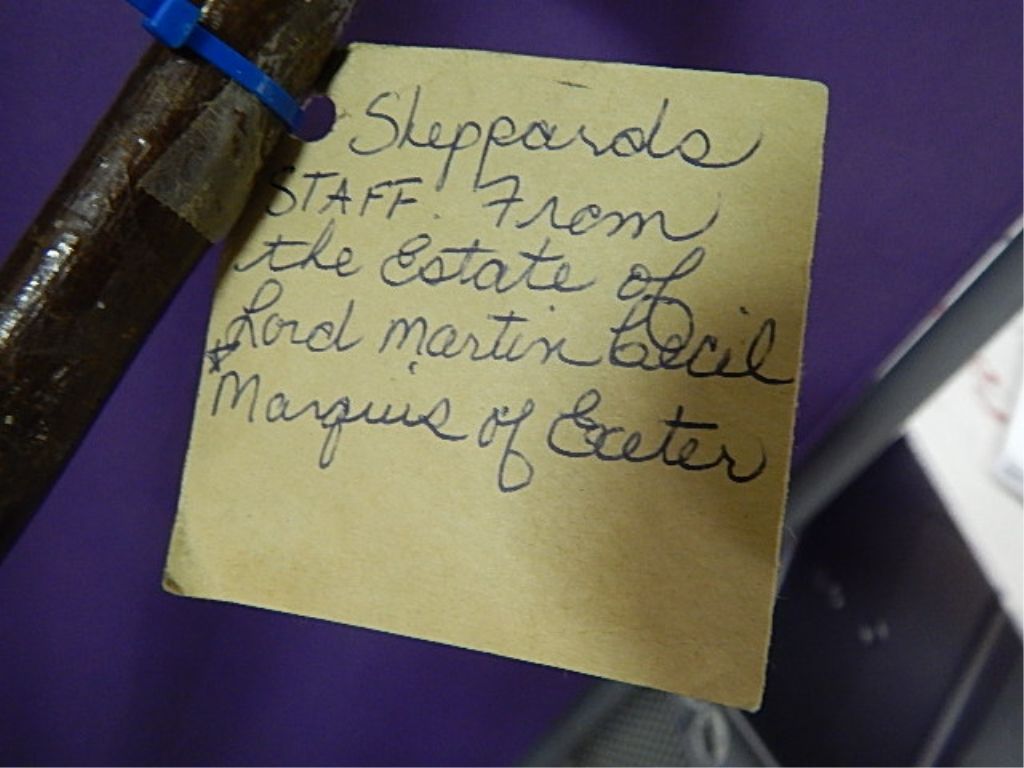 Sheppards
STAFF. From
the Estate of
Lord Martin Cecil
* Marquis of Exeter